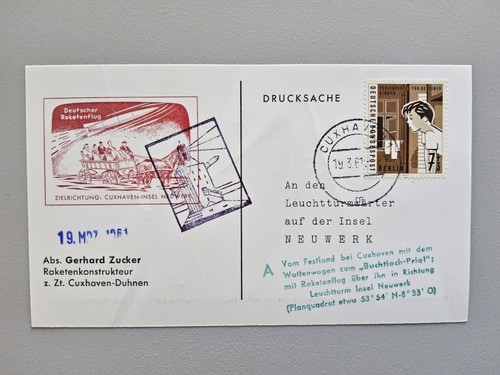 Deutscher
Raketenflug
ZIELRICHTUNG: CUXHAVEN-INSEL NEUWERK
19. MRZ. 1961
Abs. Gerhard Zucker
Raketenkonstrukteur
z. Zt. Cuxhaven-Duhnen
DRUCKSACHE
FERIENPLÄTZE FÜR BERLINER
KINDER
DEUTSCHE BUNDESPOST
BERLIN
7
CUXHAVEN
19.3.61
An den
Leuchtturmwärter
auf der Insel
NEUWERK
A Vom Festland bei Cuxhaven mit dem
Wattenwagen zum „Buchtloch-Priel";
mit Raketenflug über ihn in Richtung
Leuchtturm Insel Neuwerk
(Planquadrat etwa 53° 54' N-8° 33' O)